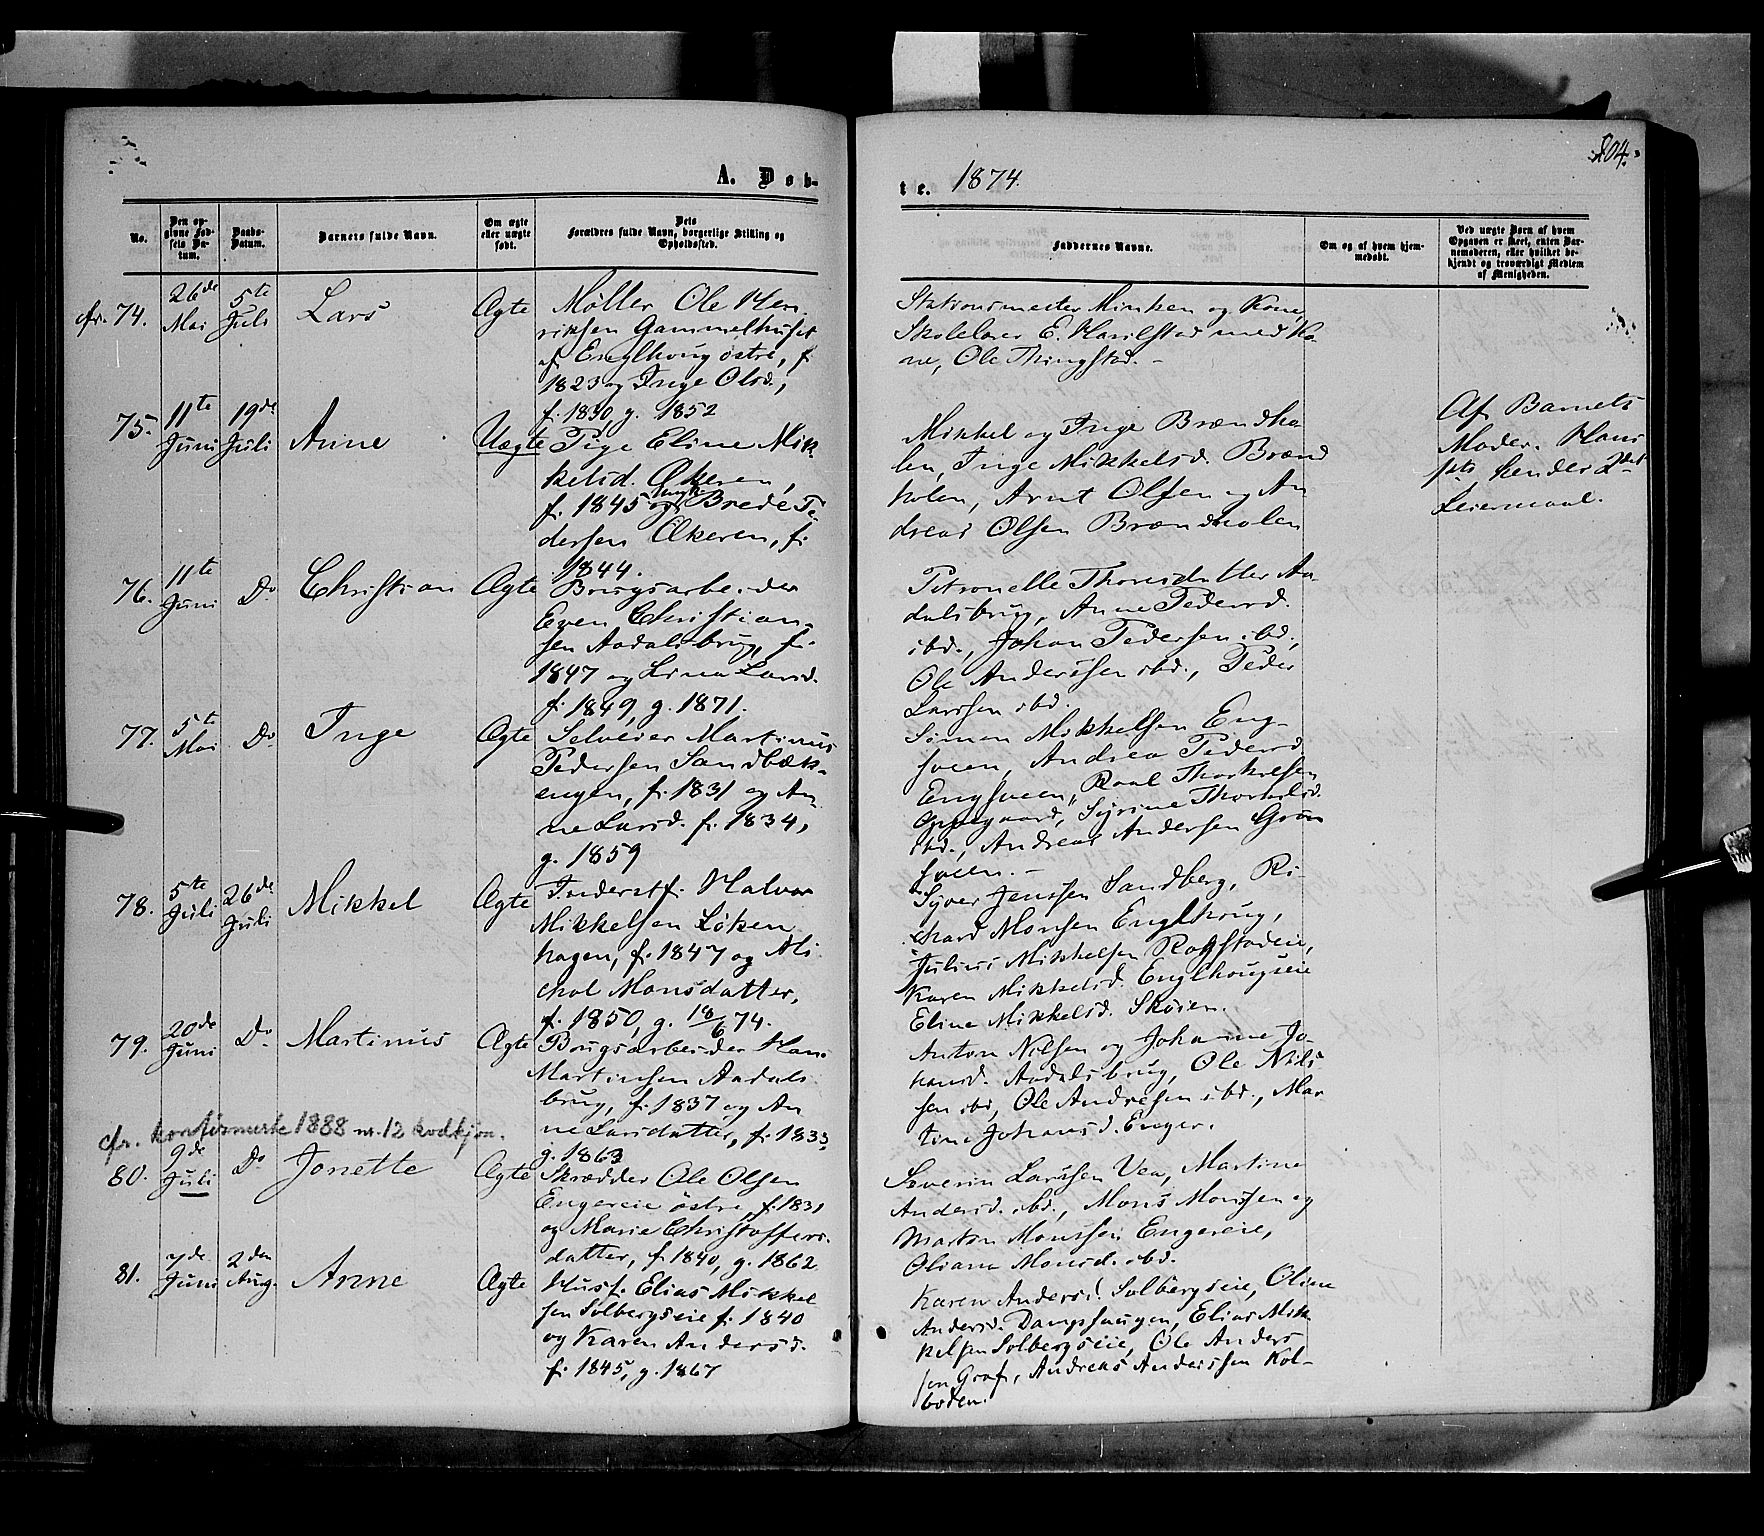 A. Døb-
te. 1874.
104.
No.
Den op-
givne Fød-
sels Da-
tum.
Daabs-
Datum.
Barnets fulde Navn.
Om ægte
eller uægte
født.
Dets
Forældres fulde Navn, borgerlige Stilling og
Opholdssted.
Faddernes Navne.
Om og af hvem hjem-
medøbt.
Ved uægte Børn af hvem
Opgaven er skeet, enten Bar-
nemoderen, eller hvilket be-
kjendt og troværdigt Medlem
af Menigheden.
cfr. 74.
26de
Mai
5te
Juli
Lars
Ægte
Møller Ole Hen
riksen Gammelhuset
af Englhoug østre, f.
1823 og Inge Olsd.,
f. 1830, g. 1852
Stationsmester Minken og Kone,
Skolelærer E. Harilstad med Ko
ne, Ole Thingstad. -
75.
11te
Juni
19de
Juli
Anne
Uægte
Pige Eline Mik
kelsd. Økeren,
f. 1845 og Ungk. Brede Pe
dersen Økeren, f.
1844.
Mikkel og Inge Brændho
len, Inge Mikkelsd. Brænd
holen, Arnt Olsen og An
dreas Olsen Brændholen
Af Barnets
Moder. Hans
1ste, hendes 2det
Leiermaal.
76.
11te
Juni
Do
Christian
Ægte
Brugsarbeider
Even Christian-
sen Aadalsbrug, f.
1847 og Lina Larsd.
f. 1849, g. 1871.
Petronelle Thoresdatter Aa
dalsbrug, Anne Pedersd.
ibd., Johan Pedersen ibd.,
Ole Anderssen ibd., Peder
Larssen ibd.
77.
5te
Mai
Do
Inge
Ægte
Selveier Martinus
Pedersen Sandbæk-
engen, f. 1831 og An
ne Larsd. f. 1834,
g. 1859
Simen Mikkelsen Eng-
sveen, Andrea Pedersd.
Engsveen, Roal Thorkelsen
Oppegaard, Syrine Thorkelsd.
ibd., Andreas Andersen Grøn
sveen. -
78.
5te
Juli
26de
Juli
Mikkel
Ægte
Inderstf. Halvor
Mikkelsen Løken
hagen, f. 1847 og Mi
chol Monsdatter,
f. 1850, g. 18/6 74.
Syver Jenssen Sandberg, Ri-
chard Monsen Englhoug,
Julius Mikkelsen Rogstadeie,
Karen Mikkelsd. Englhougseie
Eline Mikkelsd. Skøien.
79.
20de
Juni
Do
Martinus
Ægte
Brugsarbeider Hans
Martinsen Aadals
brug, f. 1837 og An
ne Larsdatter, f. 1833
g. 1863
Anton Nilsen og Johanne Jo-
hansd. Aadalsbrug, Ole Nils
sen ibd, Ole Andresen ibd., Mar
tine Johansd. Enger.
cfr. konfirmerte 1888 nr. 12 kvdkjøn.
80.
9de
Juli
Do
Jonette
Ægte
Skrædder Ole Olsen
Engereie østre, f. 1831
og Marie Christoffers-
datter, f. 1840, g. 1862
Severin Larssen Vea, Martine
Andersd. ibd., Mons Monssen og
Morten Monssen Engereie,
Oliane Monsd. ibd.
81.
7de
Juni
2den
Aug.
Anne
Ægte
Husf. Elias Mikkel
sen Solbergseie f. 1840
og Karen Andersd.
f. 1845, g. 1867
Karen Andersd. Solbergseie, Oline
Andersd. Dampsaugen, Elias Mik
kelsen Solbergseie, Ole Anders
sen Graf, Andreas Anderssen Kol-
boden.